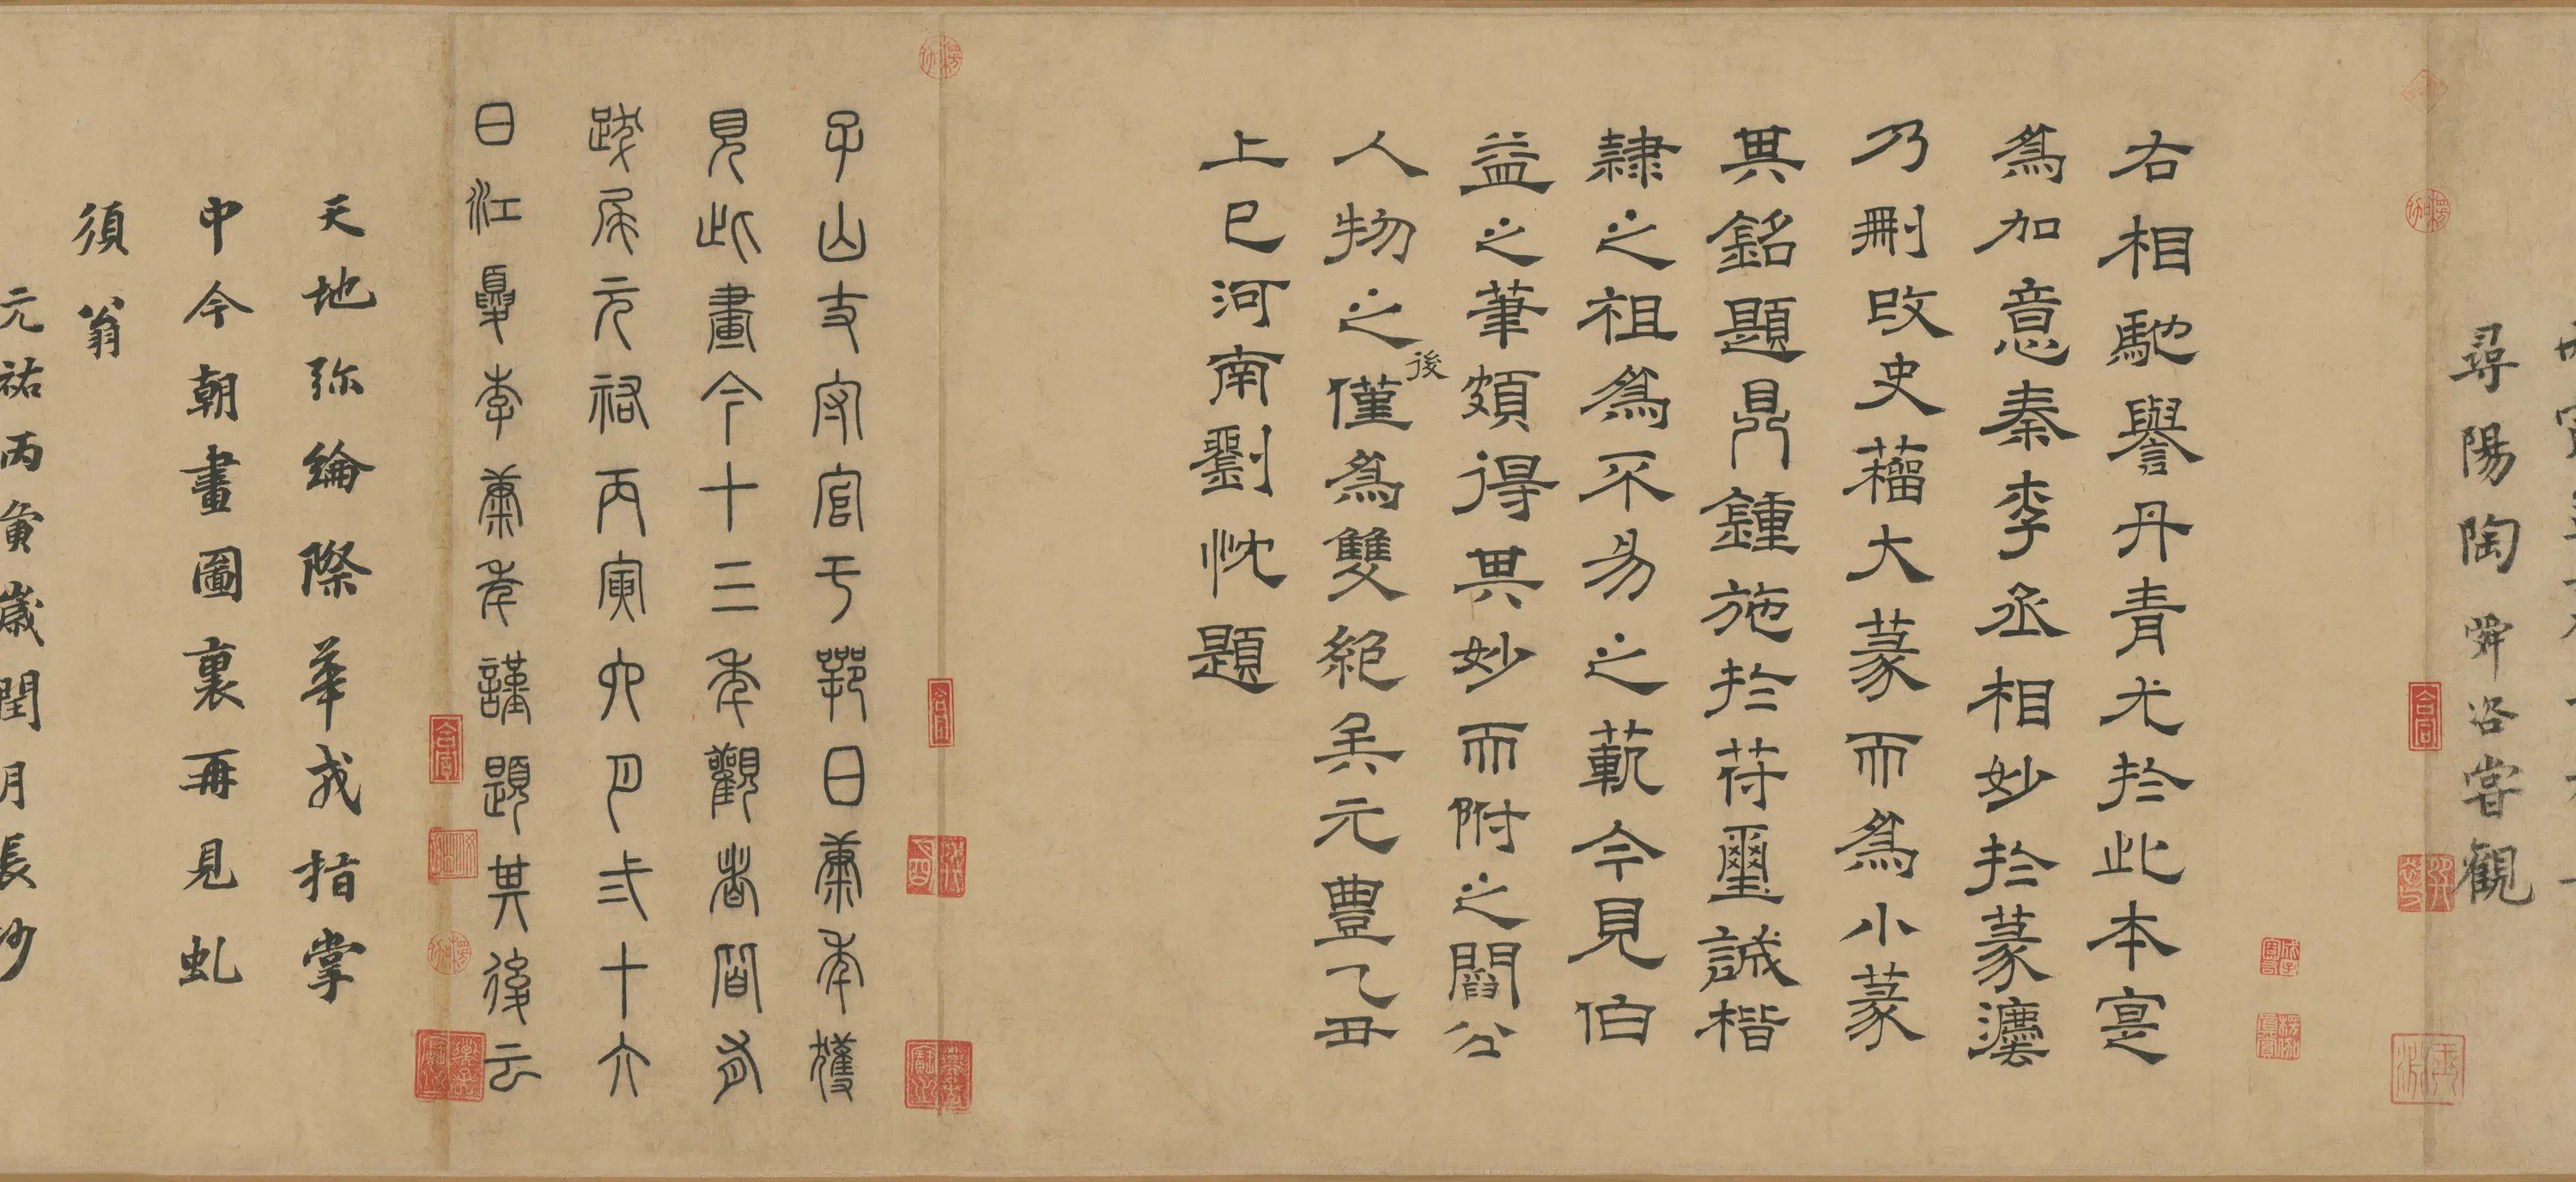 尋陽陶舜咨嘗觀
右相馳譽丹青尤於此本寔
為加意秦李丞相妙於篆灋
乃刪改史籀大篆而為小篆
其銘題鼎鍾施於符璽誠楷
隸之祖為不易之範今見伯
益之筆頗得其妙而附之閻公
人物之後僅為雙絕矣元豐乙丑
上巳河南劉忱題
子山守官于鄂日康年獲
見此畫今十三年觀者皆有
跋尾元祐丙寅六月弍十六
日江夏李康年謹題其後云
天地弥綸際華戎指掌
中今朝畫圖裏再見虬
須翁
元祐丙寅歲閏月長沙